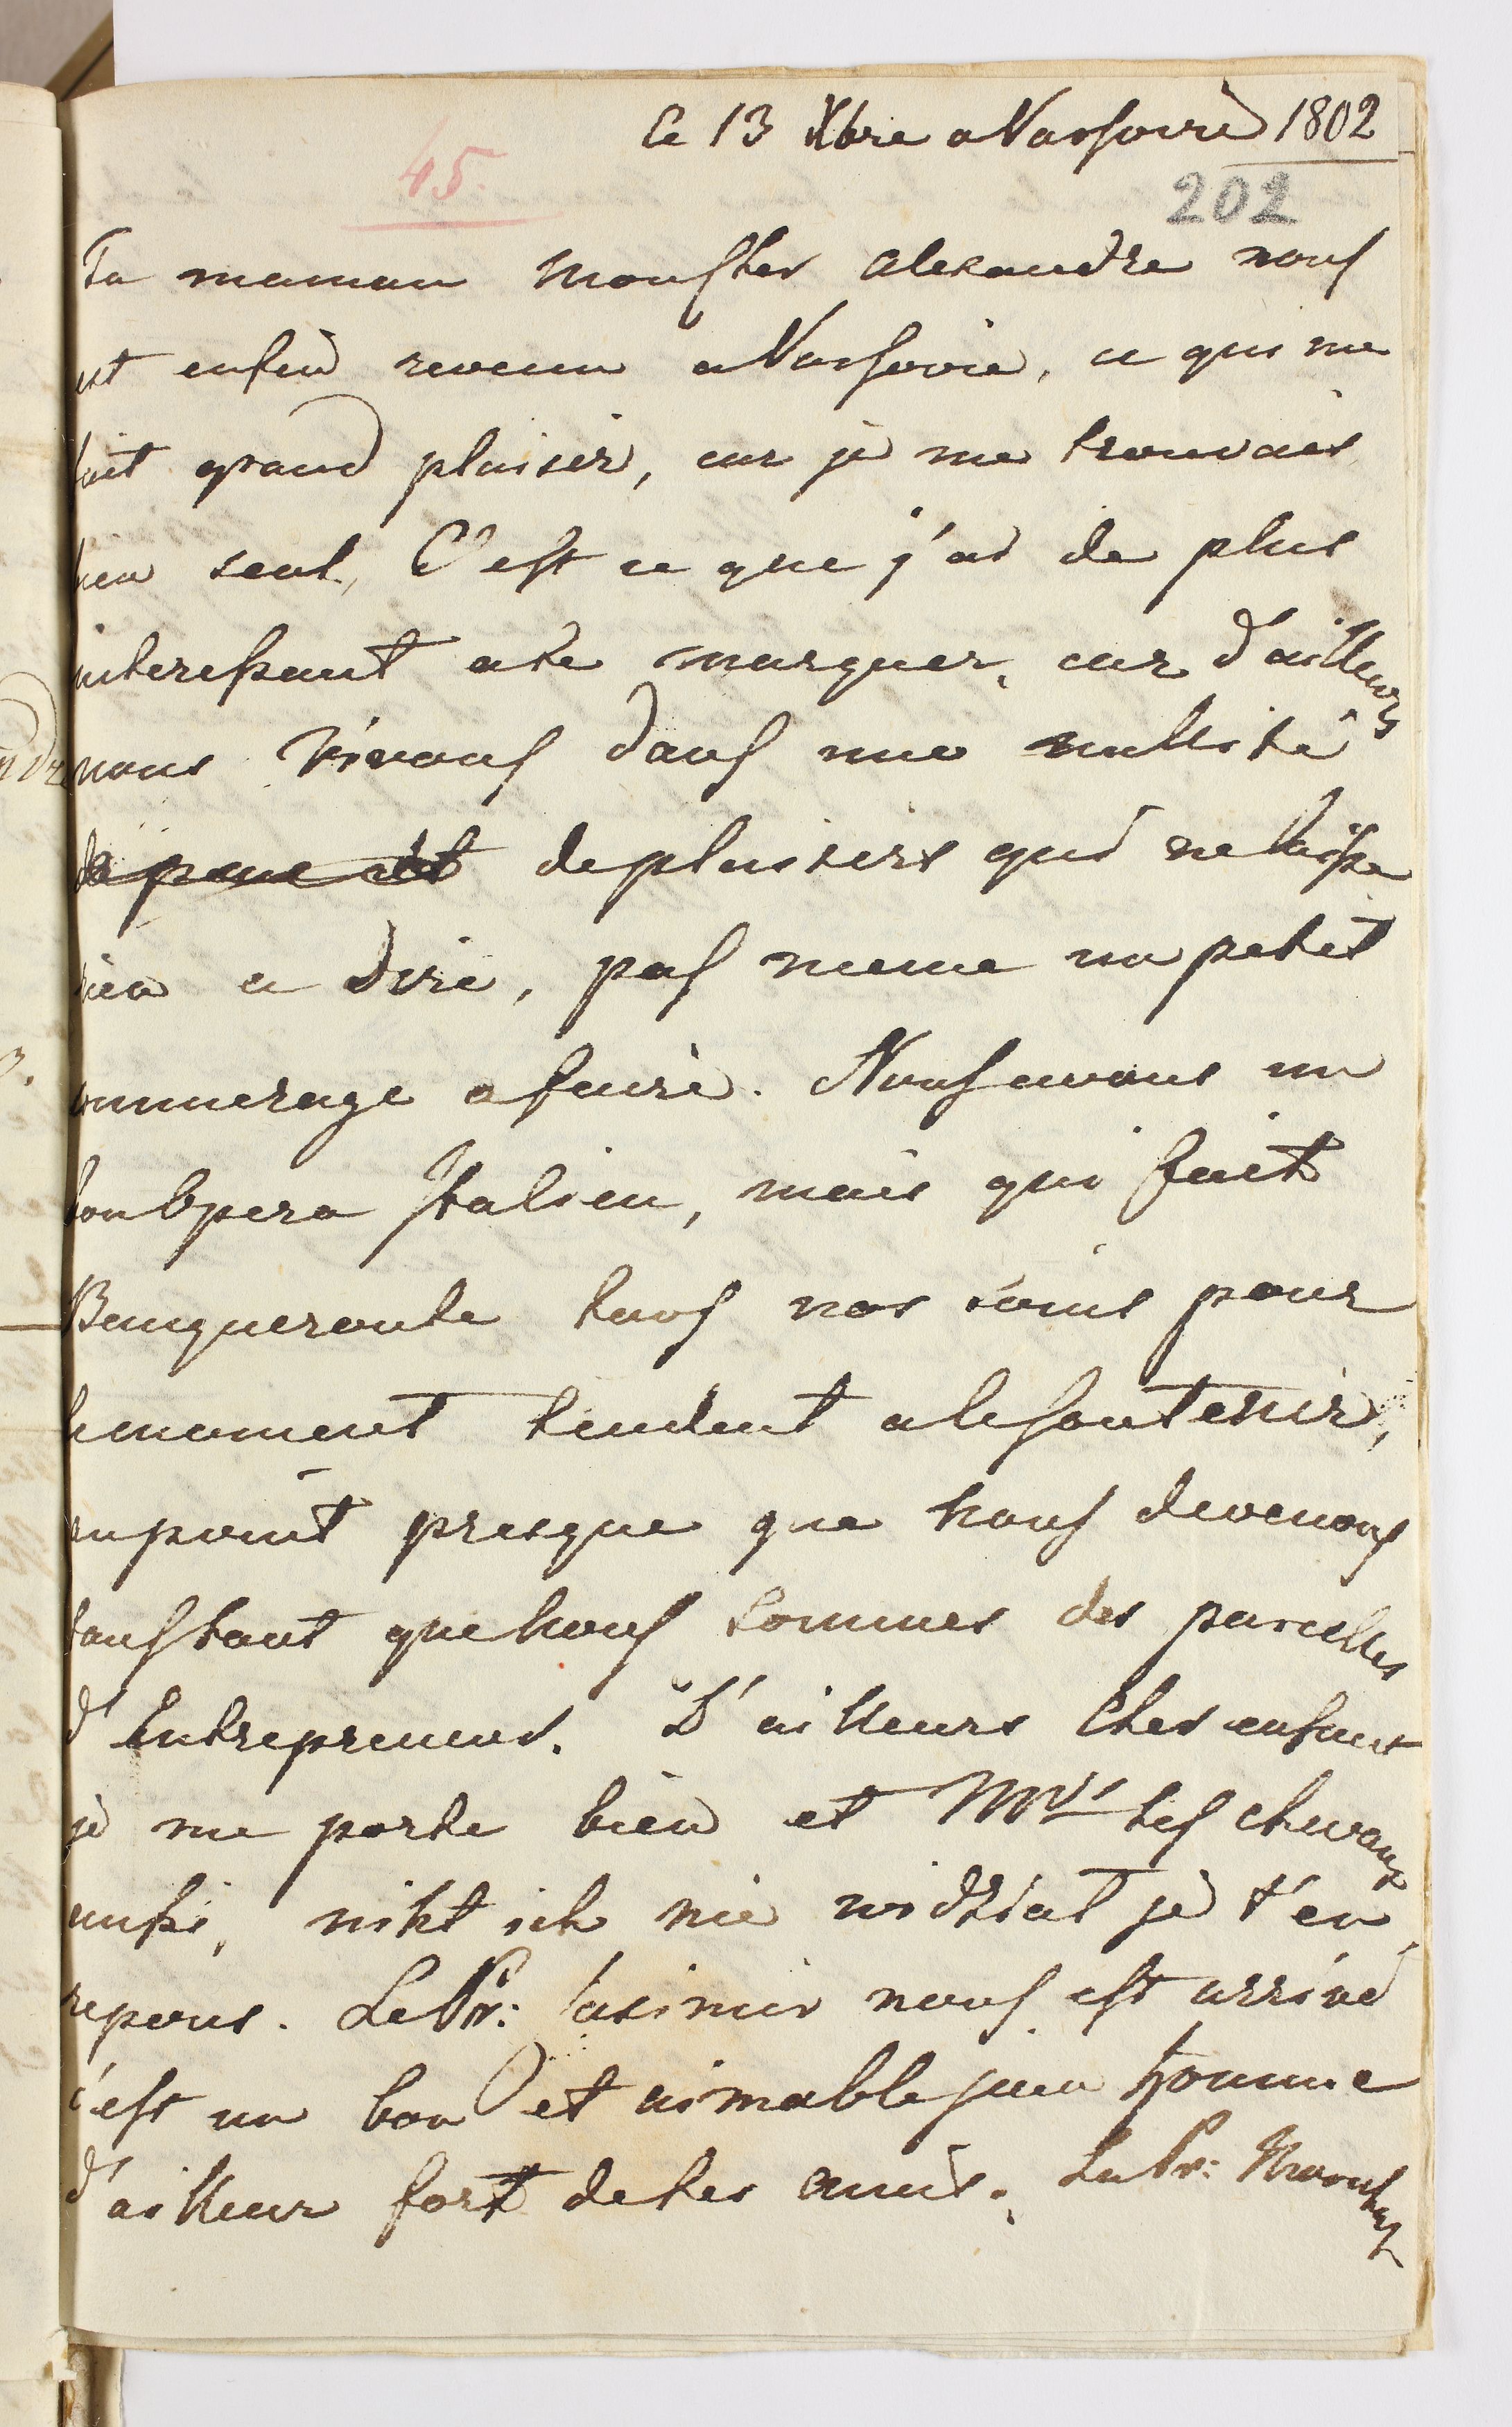 Ce 13 Xbre a Varsovie 1802
45.
202
Ta maman Mon cher Alexandre nous
est enfin revenu a Varsovie, ce qui me
fait grand plaisir, car je me trouvais
bien seul, C'est ce que j'ai de plus
interessant a te marquer, car d'ailleurs
nous Vivons dans une nullité
de plaisirs qui ne laisse
rien a dire, pas meme un petit
commerage a faire. Nous avons un
bon Opera Italien, mais qui fait
Banqueroute tous nos soins pour
le moment tendent a le soutenir,
au point presque que nous devenons
tous tant que nous sommes des parcelles
d'Entrepreneurs. D'ailleurs Cher enfant
je me porte bien et Mrs tes chevaux
aussi, nikt ich nie widział je t'en
repons. Le Pr: Casimir nous est arrivé
c'est un bon et aimable jeun homme
d'ailleur fort de tes amis. Le Pr: